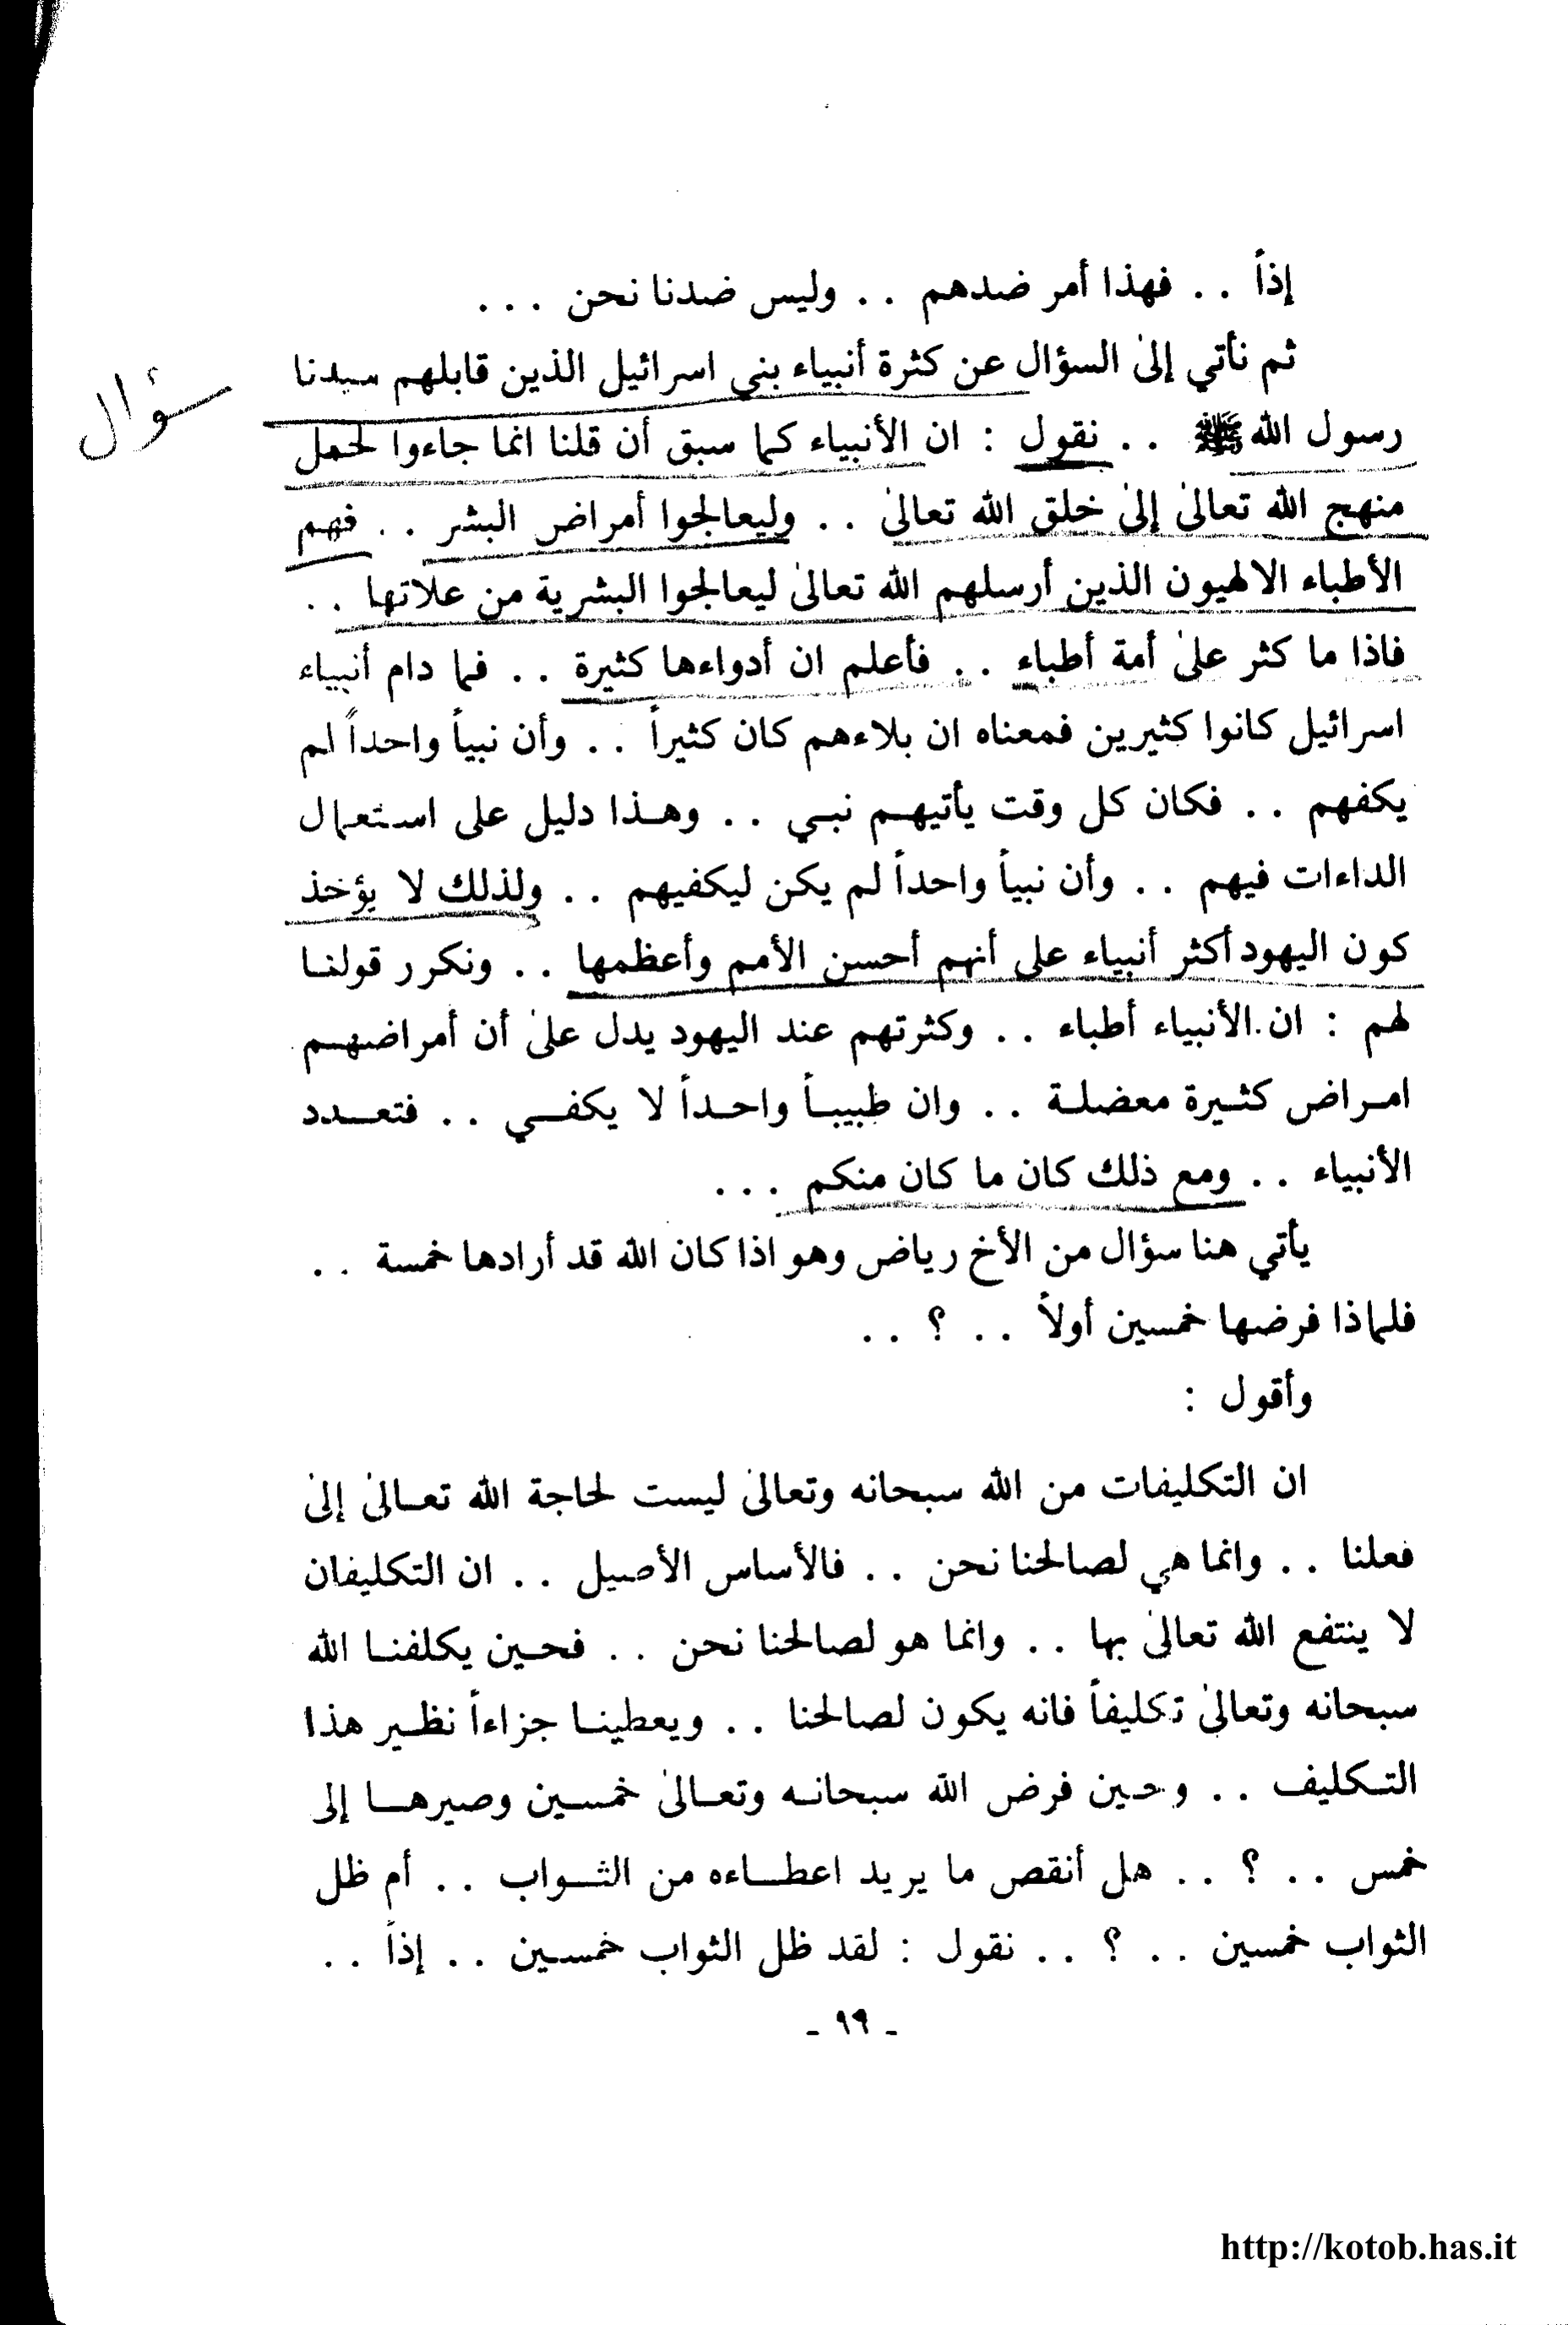 إذاً . . فهذا أمر ضدهم . . وليس ضدنا نحن . . .
ثم نأتي إلى السؤال عن كثرة أنبياء بني اسرائيل الذين قابلهم سيدنا
سؤال
رسول الله ﷺ . . نقول : ان الأنبياء كما سبق أن قلنا انما جاءوا لحمل
منهج الله تعالى إلى خلق الله تعالى . . وليعالجوا أمراض البشر . . فهم
الأطباء الالهيون الذين أرسلهم الله تعالى ليعالجوا البشرية من علاتها . .
فاذا ما كثر على أمة أطباء . . فأعلم ان أدواءها كثيرة . . فما دام أنبياء
اسرائيل كانوا كثيرين فمعناه ان بلاءهم كان كثيراً . . وأن نبياً واحداً لم
يكفهم . . فكان كل وقت يأتيهم نبي . . وهذا دليل على استعمال
الداءات فيهم . . وأن نبياً واحداً لم يكن ليكفيهم . . ولذلك لا يؤخذ
كون اليهود أكثر أنبياء على أنهم أحسن الأمم وأعظمها . . ونكرر قولنا
لهم : ان الأنبياء أطباء . . وكثرتهم عند اليهود يدل على أن أمراضهم
امراض كثيرة معضلة . . وان طبيباً واحداً لا يكفي . . فتعدد
الأنبياء . . ومع ذلك كان ما كان منكم . . .
يأتي هنا سؤال من الأخ رياض وهو اذا كان الله قد أرادها خمسة . .
فلماذا فرضها خمسين أولاً . . ؟ . .
وأقول :
ان التكليفات من الله سبحانه وتعالى ليست لحاجة الله تعالى إلى
فعلنا . . وانما هي لصالحنا نحن . . فالأساس الأصيل . . ان التكليفان
لا ينتفع الله تعالى بها . . وانما هو لصالحنا نحن . . فحين يكلفنا الله
سبحانه وتعالى تكليفاً فانه يكون لصالحنا . . ويعطينا جزاءاً نظير هذا
التكليف . . وحين فرض الله سبحانه وتعالى خمسين وصيرها إلى
خمس . . ؟ . . هل أنقص ما يريد اعطاءه من الثواب . . أم ظل
الثواب خمسين . . ؟ . . نقول : لقد ظل الثواب خمسين . . إذاً . .
- ٩٩ -
http://kotob.has.it